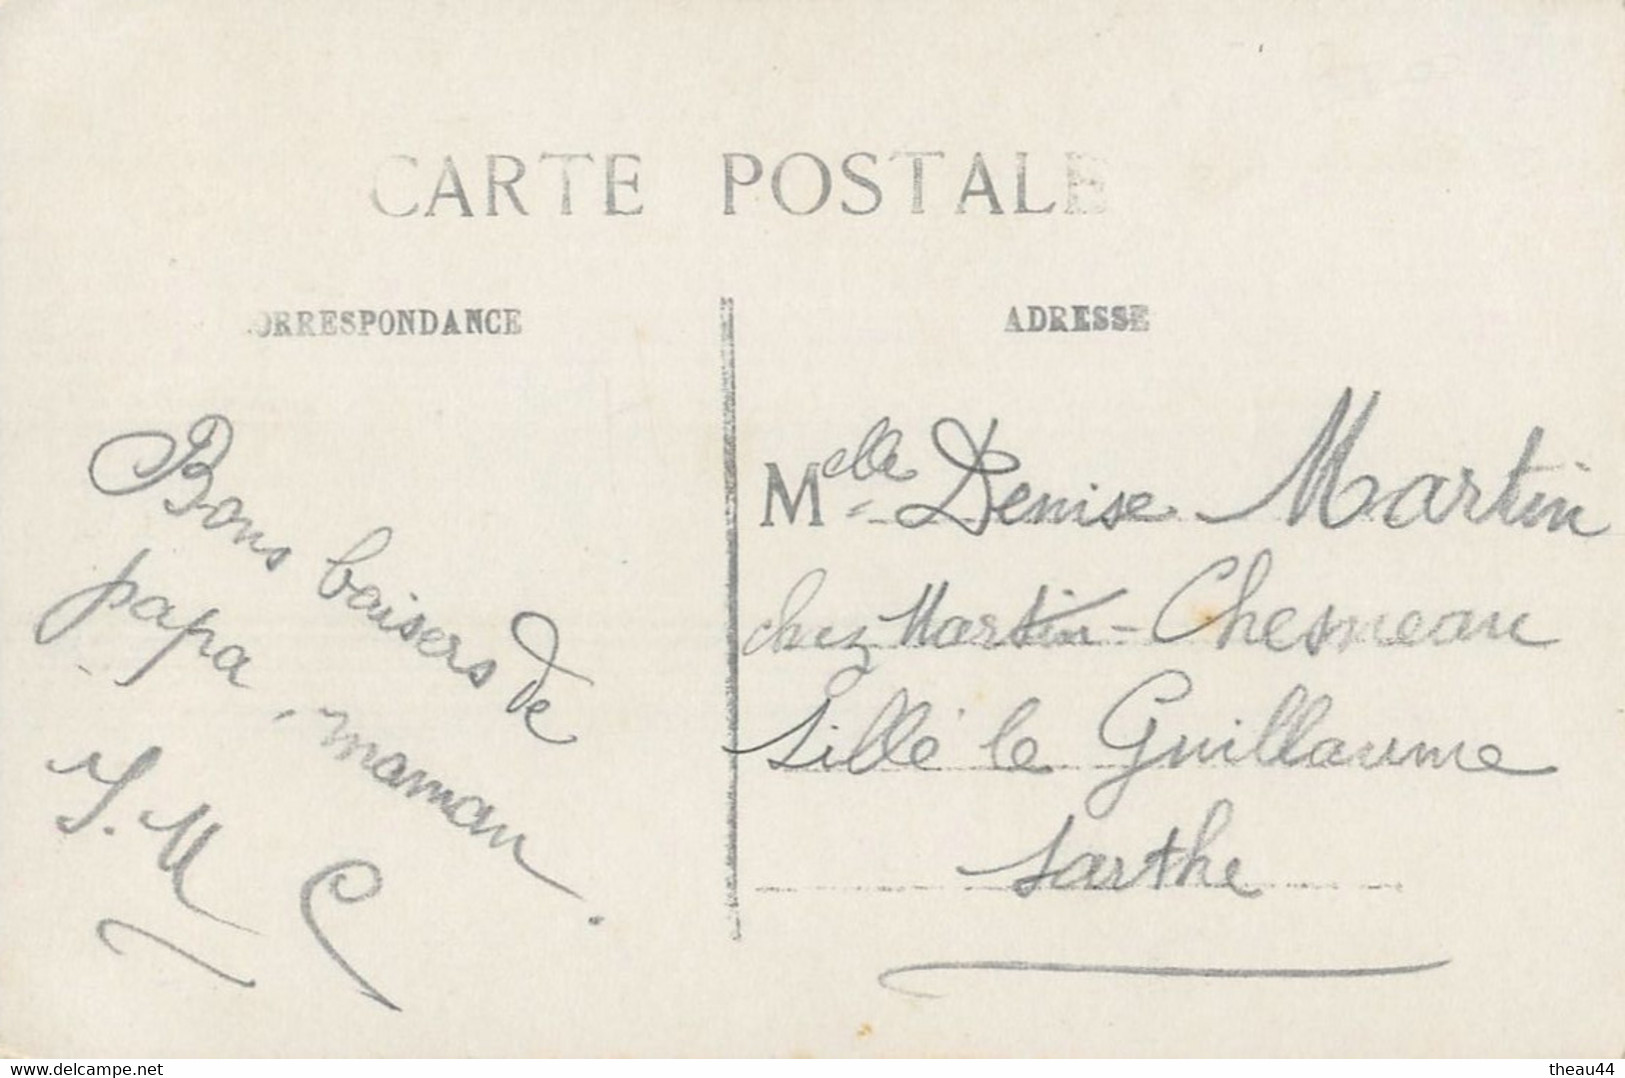 CARTE POSTALE
CORRESPONDANCE
ADRESSE
Bons baisers de
papa, maman.
J. M
Melle Denise Martin
chez Martin-Chesneau
Sillé le Guillaume
Sarthe
www.delcampe.net
theau44